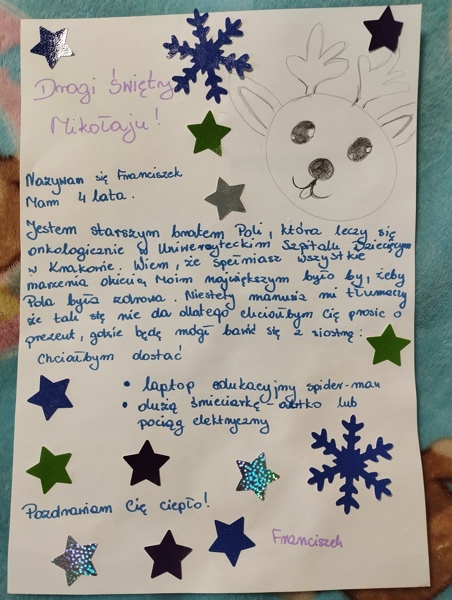 Drogi Święty
Mikołaju!
Nazywam się Franciszek
Mam 4 lata.
Jestem starszym bratem Poli, która leczy się
onkologicznie w Uniwersyteckim Szpitalu Dziecięcym
w Krakowie. Wiem, że spełniasz wszystkie
marzenia dzieci. Moim największym było by, żeby
Pola była zdrowa. Niestety mamusia mi tłumaczy
że tak się nie da dlatego chciałbym Cię prosić o
prezent, gdzie będę mógł bawić się z siostrą:
Chciałbym dostać
• laptop edukacyjny spider-man
• dużą śmieciarkę - autko lub
pociąg elektryczny
Pozdrawiam Cię ciepło!
Franciszek